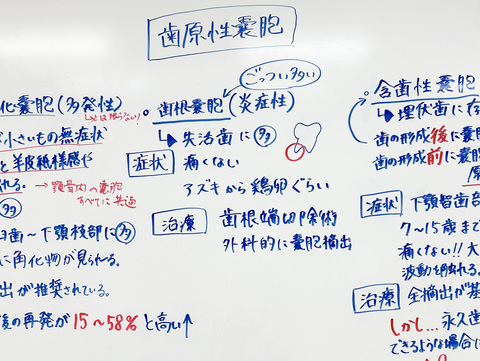 歯原性嚢胞
化嚢胞(多発性)
とは限らない
小さいもの無症状
と羊皮紙様感や
れる。→顎骨内の嚢胞
すべてに共通
多
臼歯~下顎枝部に多
に角化物が見られる。
出が推奨されている。
後の再発が15~58%と高い↑
ごっつい多い
歯根嚢胞(炎症性)
失活歯に多
症状 痛くない
アズキから鶏卵ぐらい
治療 歯根端切除術
外科的に嚢胞摘出
含歯性嚢胞
埋伏歯に存
歯の形成後に嚢
歯の形成前に嚢胞
症状 下顎智歯部
7~15歳ま
痛くない!!大
波動を触れる。
治療 全摘出が基
しかし…永久歯
できるような場合に